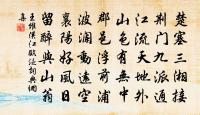 楚塞三湘接
荊門九派通
江流天地外
山色有無中
郡邑浮前浦
波瀾動遠空
襄陽好風日
留醉與山翁
王維漢江臨泛詩典網
集